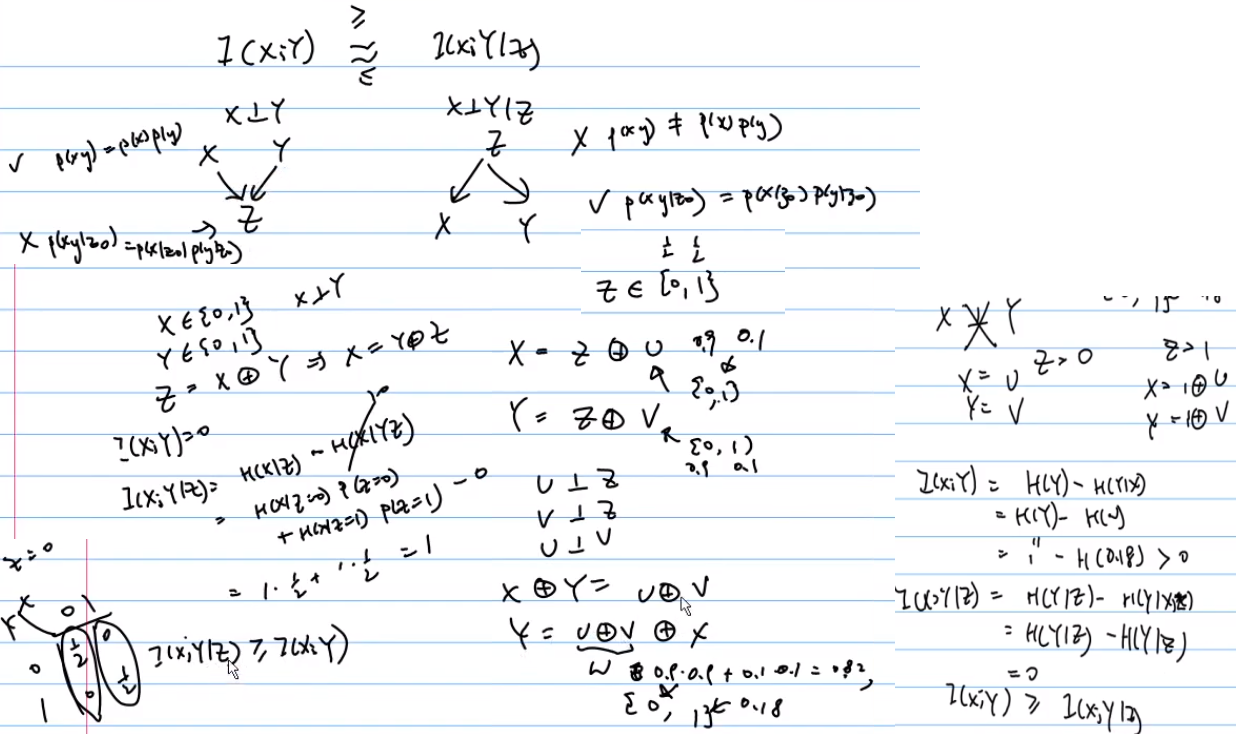 I(X;Y) ≥ ≈ ≤ I(X;Y|Z)
X⊥Y
✓ p(xy) = p(x)p(y)
X Y
Z
X p(xy|z0) = p(x|z0)p(y|z0)
X⊥Y|Z
Z
X Y
X p(xy) ≠ p(x)p(y)
✓ p(xy|z0) = p(x|z0)p(y|z0)
1/2 1/2
Z ∈ {0,1}
X ∈ {0,1} X⊥Y
Y ∈ {0,1}
Z = X ⊕ Y ⇒ X = Y⊕Z
I(X;Y)=0
I(X;Y|Z)= H(X|Z) - H(X|YZ) 0
= H(X|Z=0) P(Z=0)
+ H(X|Z=1) P(Z=1) - 0
= 1·1/2 + 1·1/2 = 1
z=0
X 0 1
Y
0 1/2 0
1 0 1/2
I(X;Y|Z) ≥ I(X;Y)
X = Z ⊕ U 0.9 0.1
{0,1}
Y = Z ⊕ V
{0,1}
0.9 0.1
U ⊥ Z
V ⊥ Z
U ⊥ V
X ⊕ Y = U ⊕ V
Y = U⊕V ⊕ X
W 0.9·0.9 + 0.1·0.1 = 0.82,
{0, 1} 0.18
X Y
Z=0 Z=1
X= U X= 1⊕U
Y= V Y=1⊕V
I(X;Y) = H(Y) - H(Y|X)
= H(Y) -
= 1 - H(0.18) > 0
I(X;Y|Z) = H(Y|Z) -
= H(Y|Z) - H(Y|Z)
= 0
I(X;Y) ≥ I(X;Y|Z)